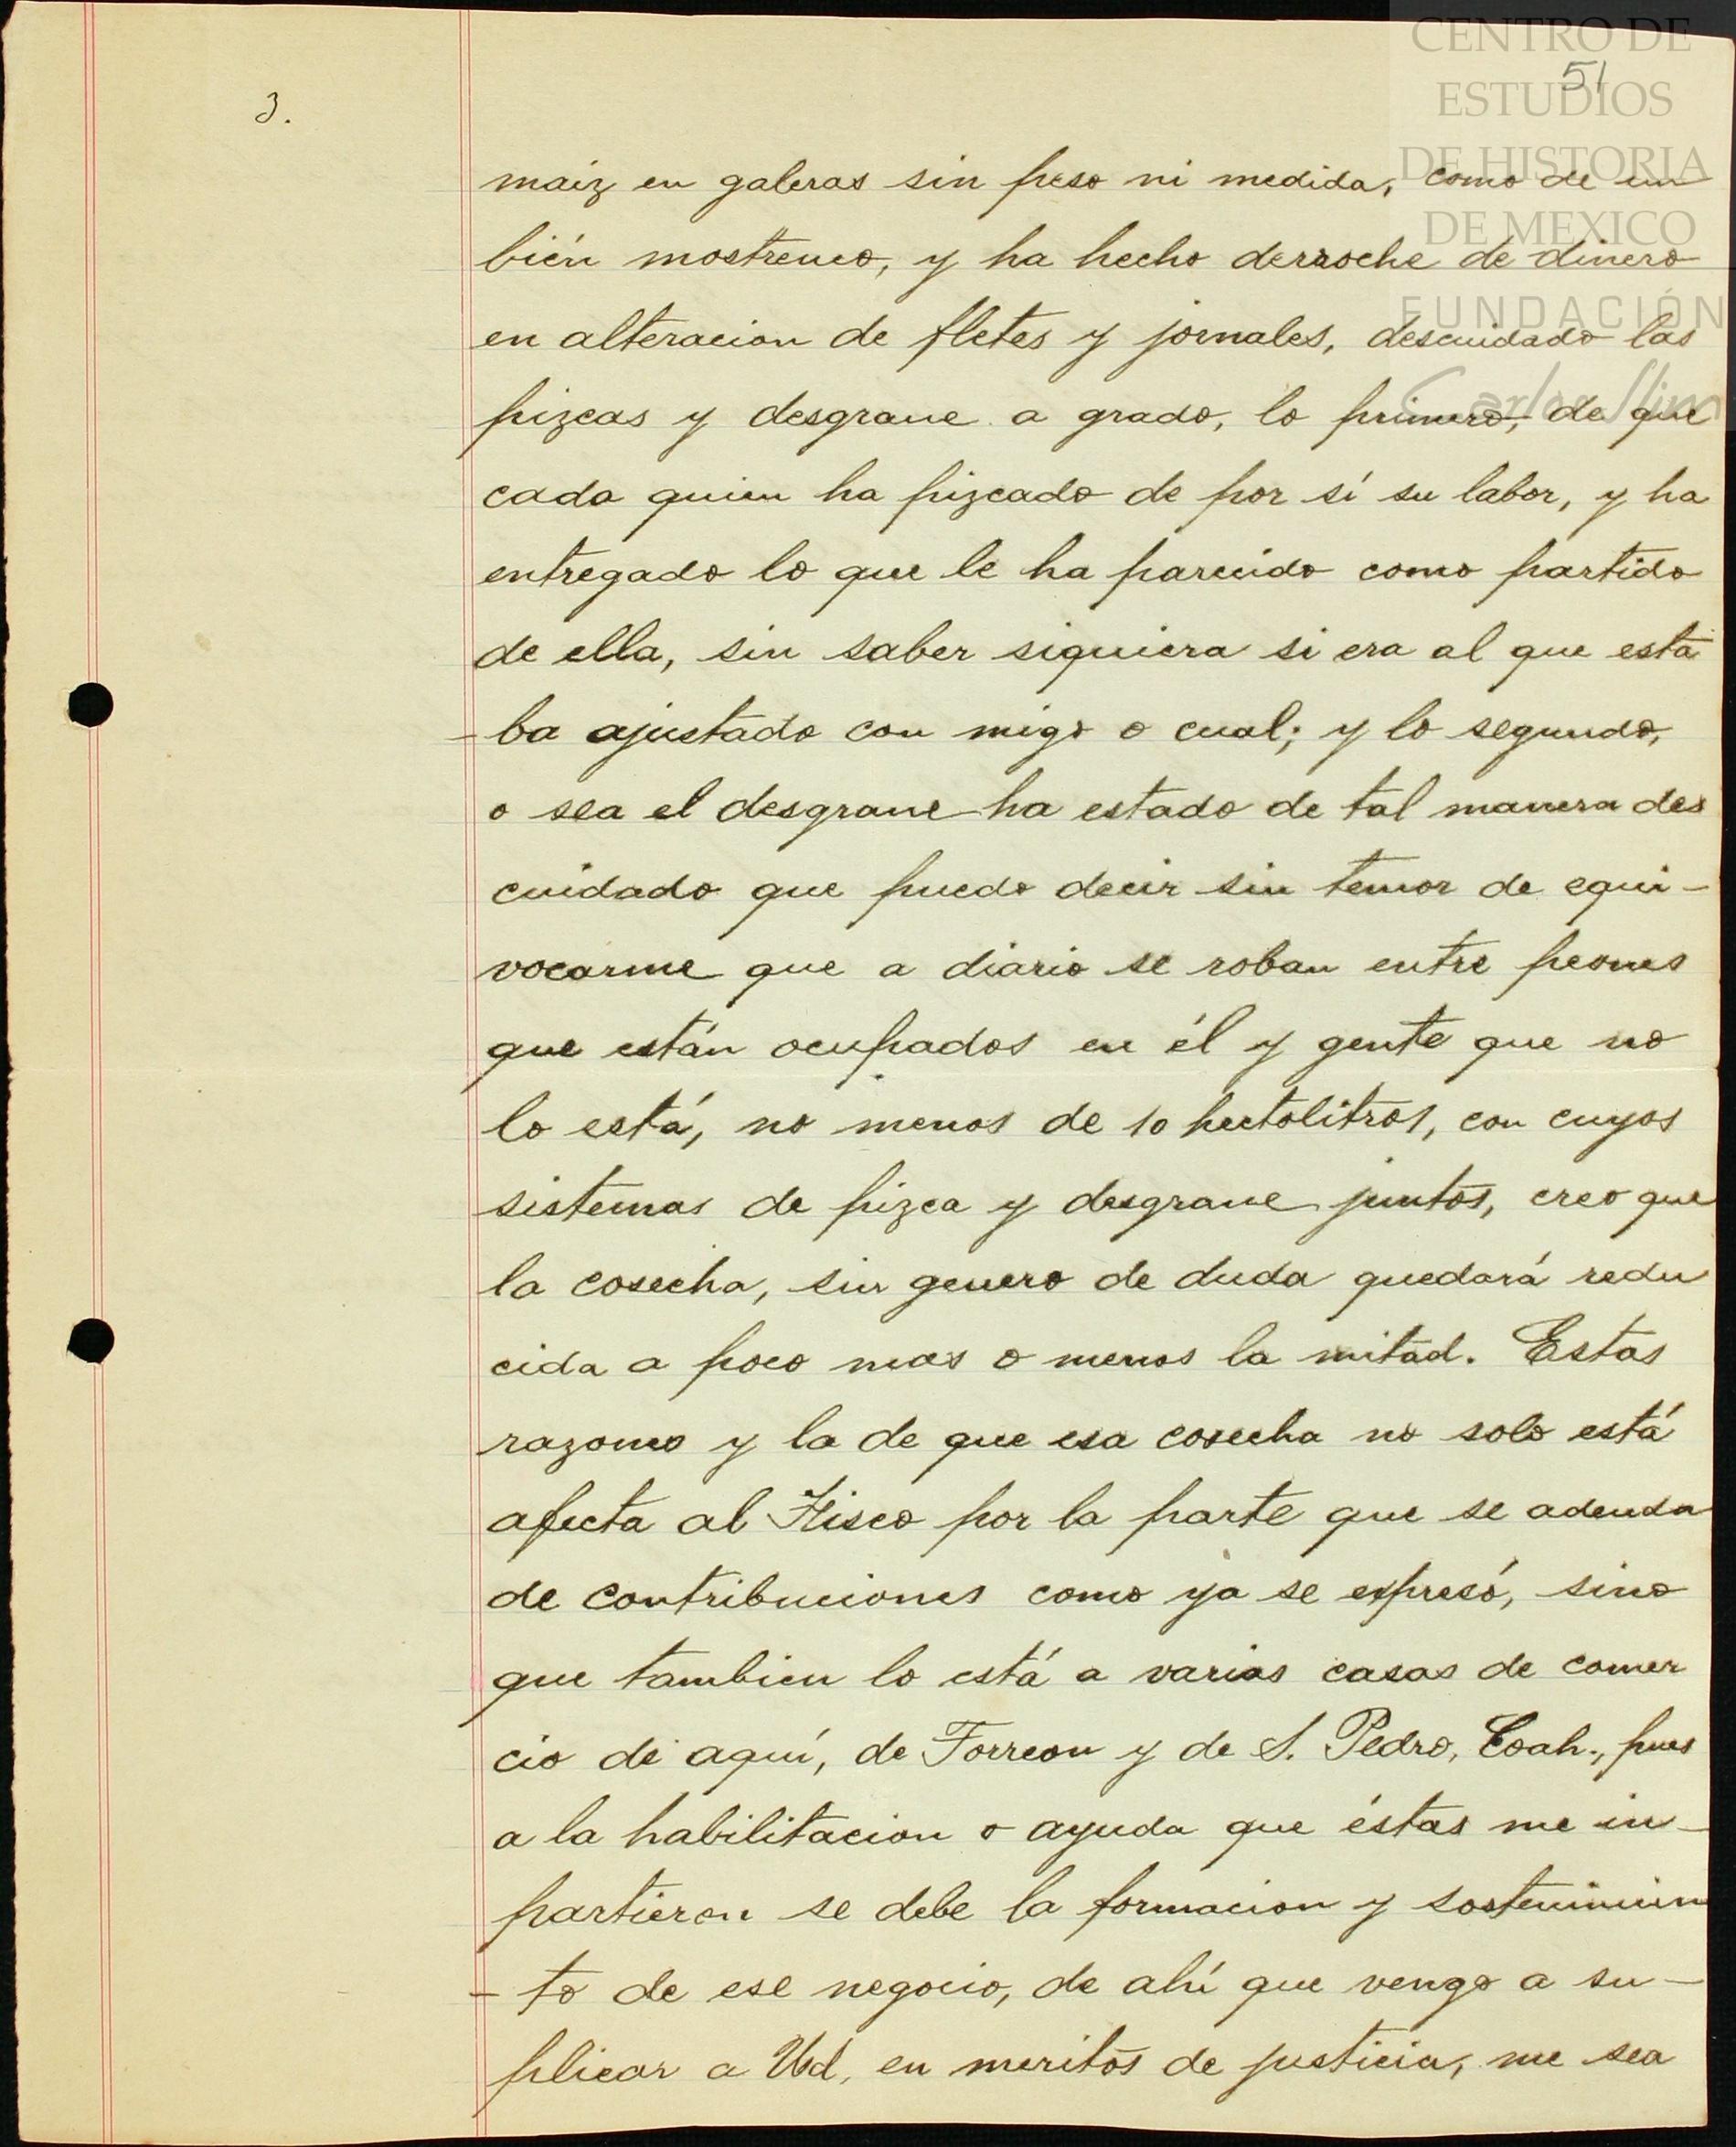 CENTRO DE
ESTUDIOS
DE HISTORIA
DE MEXICO
FUNDACIÓN
Carlos Slim
51
3.
maiz en galeras sin peso ni medida, como de un
bién mostrenco, y ha hecho derroche de dinero
en alteracion de fletes y jornales, descuidado las
pizcas y desgrane a grado, lo primero, de que
cada quien ha pizcado de por sí su labor, y ha
entregado lo que le ha parecido como partido
de ella, sin saber siquiera si era al que esta
-ba ajustado con migo o cual; y lo segundo,
o sea el desgrane ha estado de tal manera des
cuidado que puedo decir sin temor de equi-
vocarme que a diario se roban entre peones
que están ocupados en él y gente que no
lo está, no menos de 10 hectolitros, con cuyos
sistemas de pizca y desgrane juntos, creo que
la cosecha, sin genero de duda quedará redu
cida a poco mas o menos la mitad. Estas
razones y la de que esa cosecha no solo está
afecta al Fisco por la parte que se adeuda
de contribuciones como ya se expresó, sino
que tambien lo está a varias casas de comer
cio de aquí, de Torreon y de S. Pedro, Coah., pues
a la habilitacion o ayuda que éstas me in-
partieron se debe la formacion y sostenimien
-to de ese negocio, de ahí que vengo a su-
plicar a Ud, en meritos de justicia, me sea